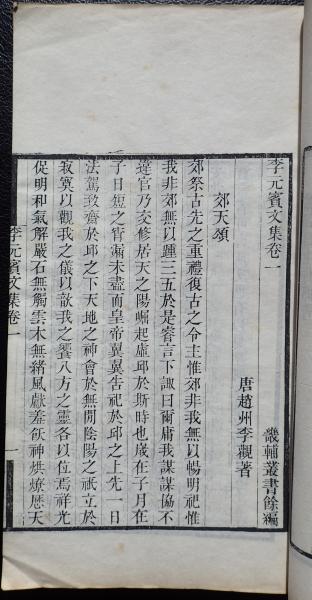 李元賓文集卷一
畿輔叢書餘編
唐趙州李觀著
郊天頌
郊祭古先之重禮復古之令主惟郊非我無以暢明祀惟
我非郊無以踵三五於是睿言下諏曰爾庸我謀謀協不
違官乃交修居天之陽崛起虛邱於斯時也歲在子月在
子日短之宵漏未盡而皇帝翼翼告祀於邱之上先一日
法駕致齋於邱之下天地之神會於無閒陰陽之祇立於
寂寞以觀我之儀以歆我之饗八方之靈各以位焉祥光
促明和氣解嚴石無觸雲木無緒風獻羞於神烘燎厯天
李元賓文集卷一
一